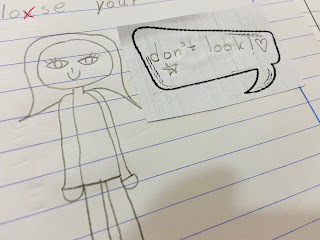 loxse your
don't look!